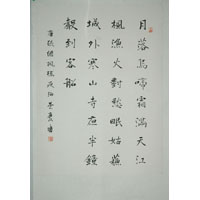 月落烏啼霜滿天江
楓漁火對愁眠姑蘇
城外寒山寺夜半鐘
聲到客船
唐張繼楓橋夜泊